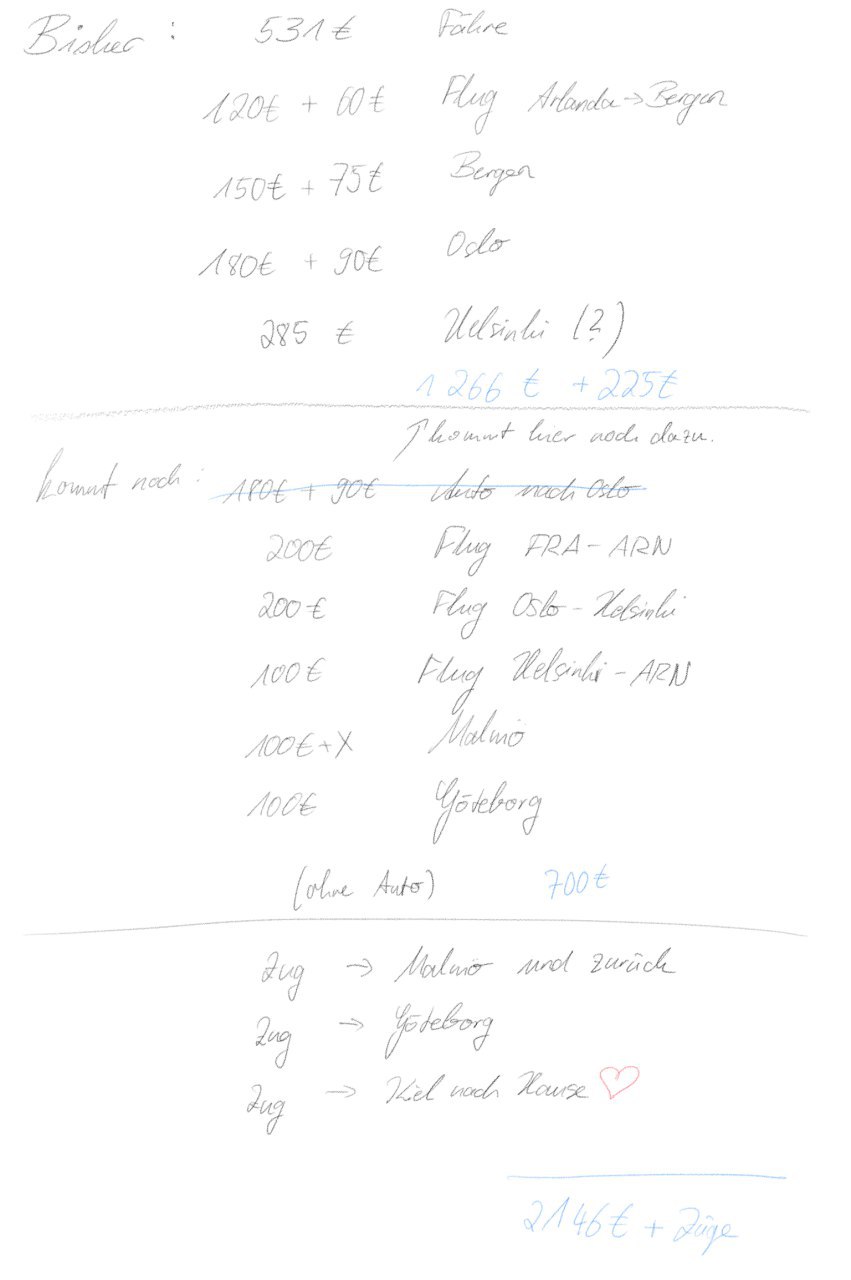 Bisher: 531€ Fähre
120€ + 60€ Flug Arlanda → Bergen
150€ + 75€ Bergen
180€ + 90€ Oslo
285 € Helsinki (?)
1 266 € + 225€
↑ kommt hier noch dazu.
kommt noch: 180€ + 90€ Auto nach Oslo
200€ Flug FRA - ARN
200€ Flug Oslo - Helsinki
100€ Flug Helsinki - ARN
100€ + X Malmö
100€ Göteborg
(ohne Auto) 700€
Zug → Malmö und zurück
Zug → Göteborg
Zug → Kiel nach Hause ♡
2146€ + Züge